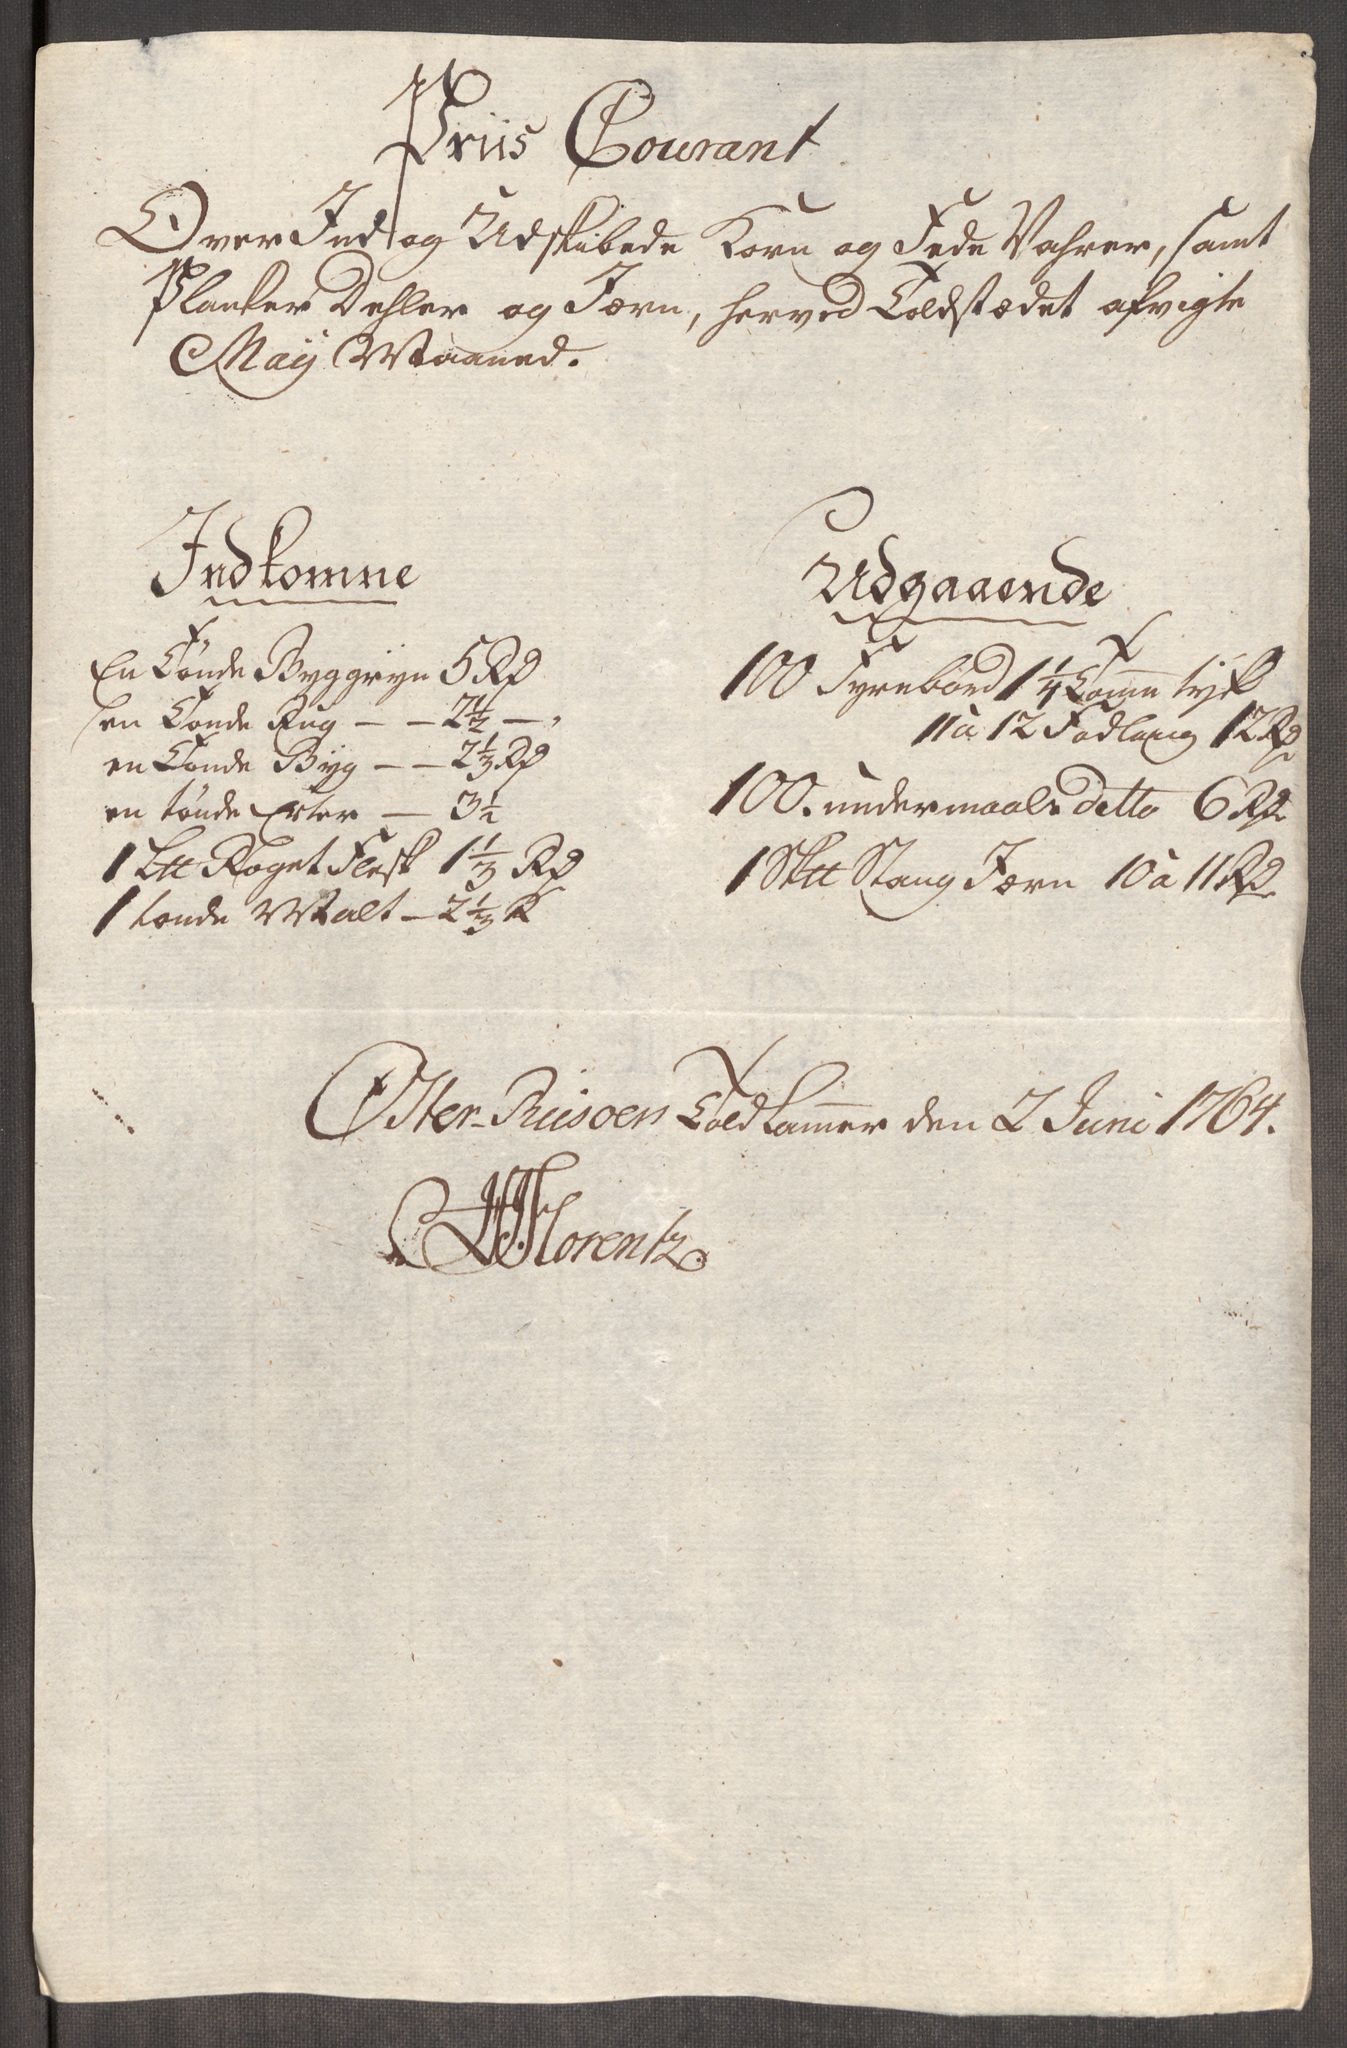 Priis Courant
Over Ind og Udskibede Korn og Fede Vahrer, samt
Planker Dehler og Jærn, herved Toldstædet afvigte
Maij Maaned.
Indkomne
En Tønde Byggryn 5 Rd
en Tønde Rug — — 2 1/2 —,
en Tønde Byg — — 2 1/3 Rd
en tønde Erter — 3 1/2
1 L℔ Røget Flesk 1 1/3 Rd
1 tønde Malt — 2 1/3 R
Udgaaende
100 Fyrrebord 1 1/4 Tomme tyk
11 a 12 Fod lang 12 Rd
100. undermaals detto 6 Rd
1 Sk℔ Stang Jærn 10 a 11 Rd
Øster-Riisøers Toldkammer den 2 Juni 1764.
Florentz